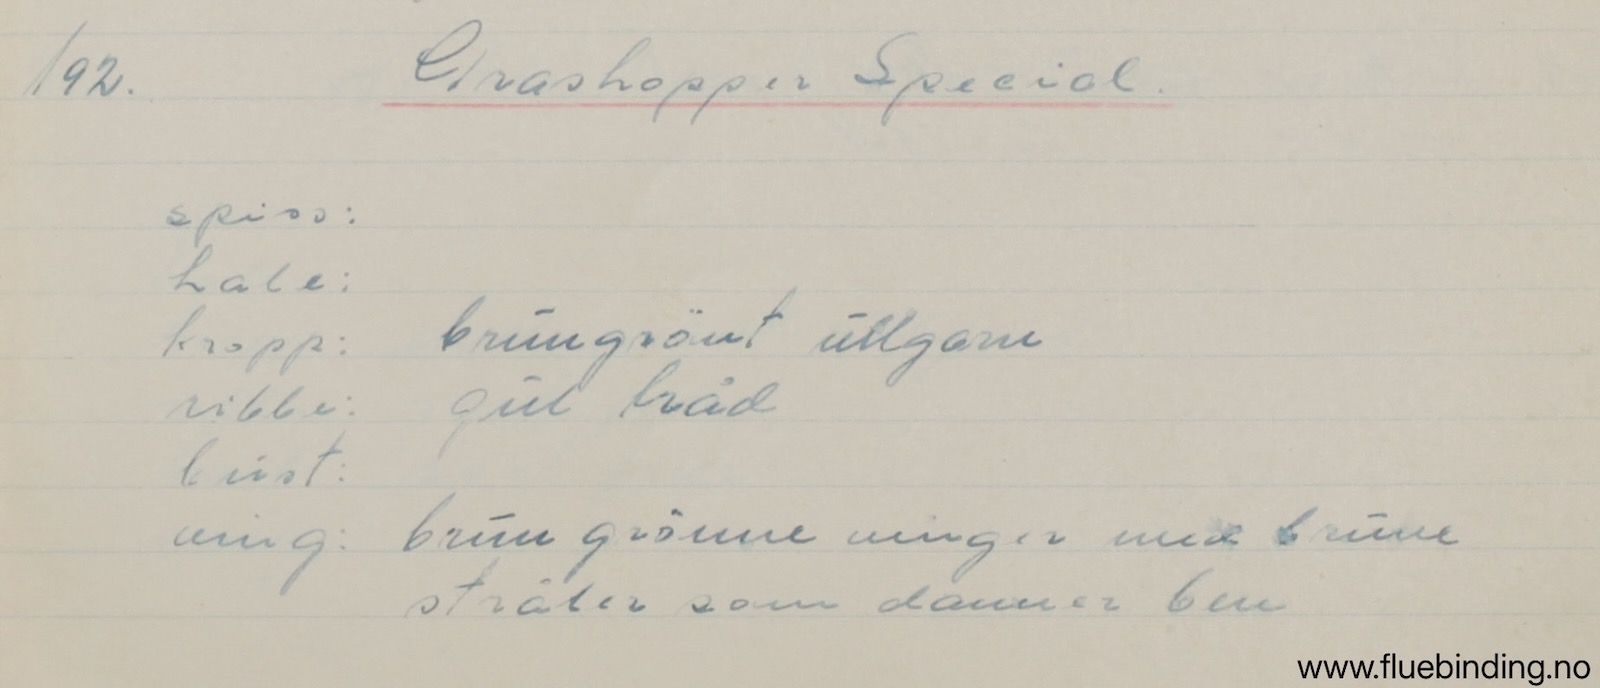 192. Grashopper Special.
spiss:
hale:
kropp: brungrönt ullgarn
ribbe: gul tråd
bust:
ving: brungrönne vinger med brune
stråler som danner ben
www.fluebinding.no